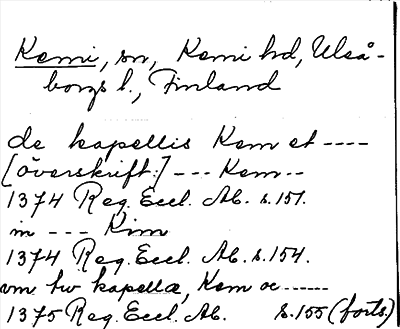 Kemi, sn, Kemi hd, Uleå-
borgs l., Finland
de kapellis Kem et ----
[överskrift:] --- Kem--
1374 Reg. Eccl. Ab. s.151.
in --- Kim
1374 Reg. Eccl. Ab. s.154.
vm hw kapellæ, Kem oc -----
1375 Reg. Eccl. Ab. s.155 (forts)